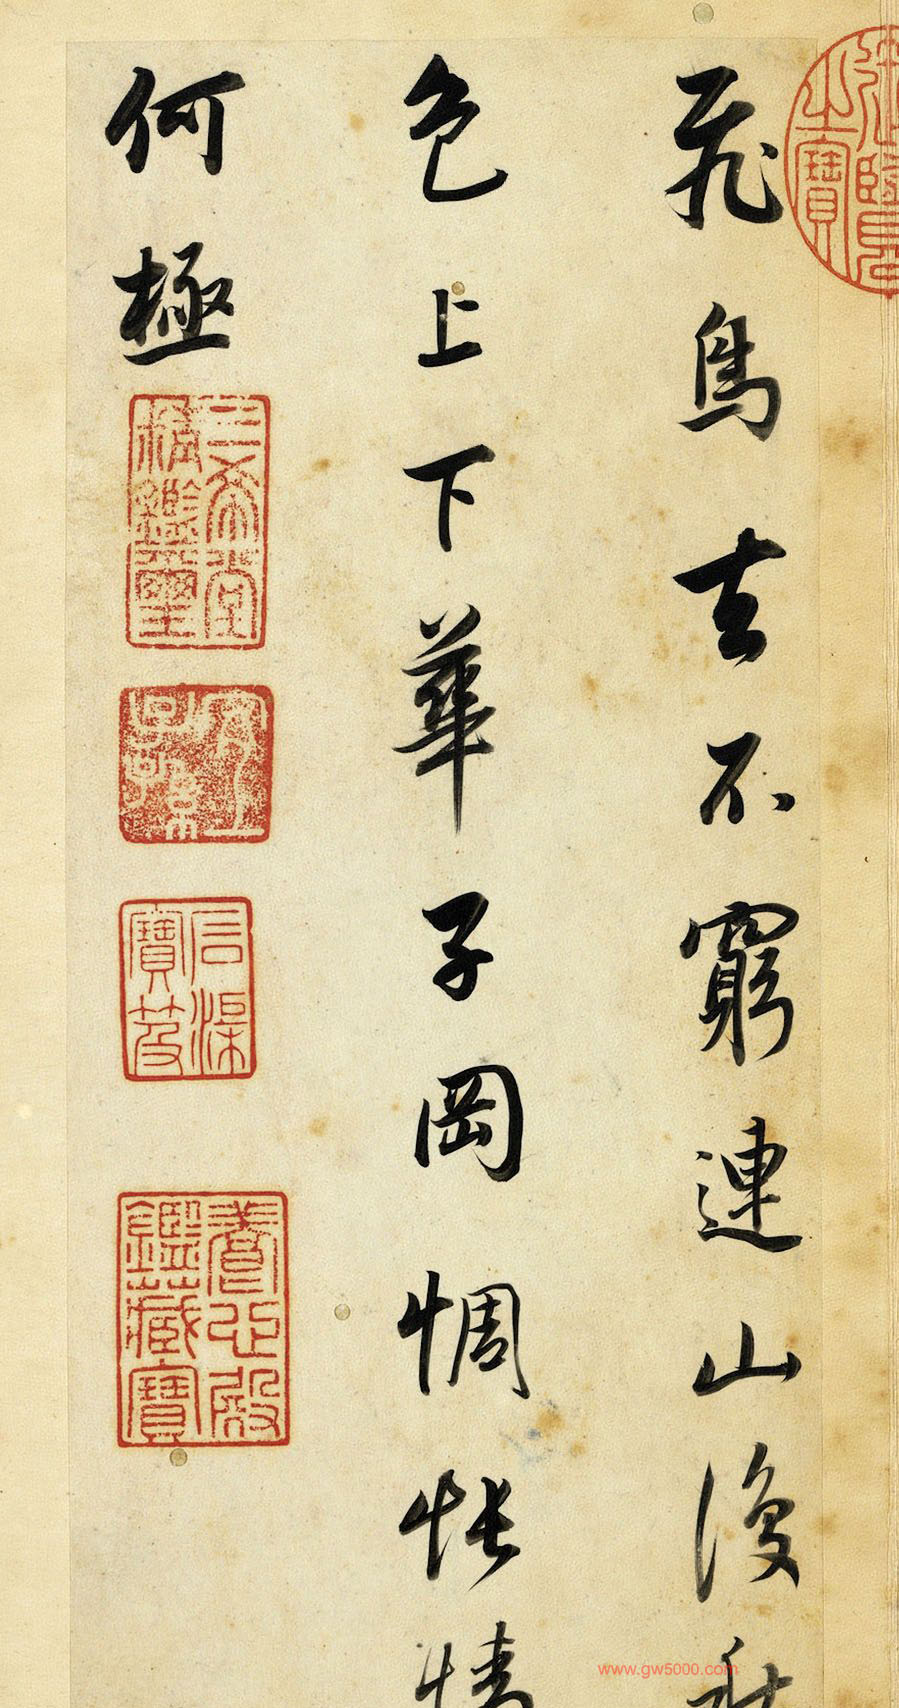 飛鳥去不窮連山復秋
色上下華子岡惆悵情
何極
三希堂精鑑璽
宜子孫
石渠寶笈
養心殿鑑藏寶
www.gw5000.com